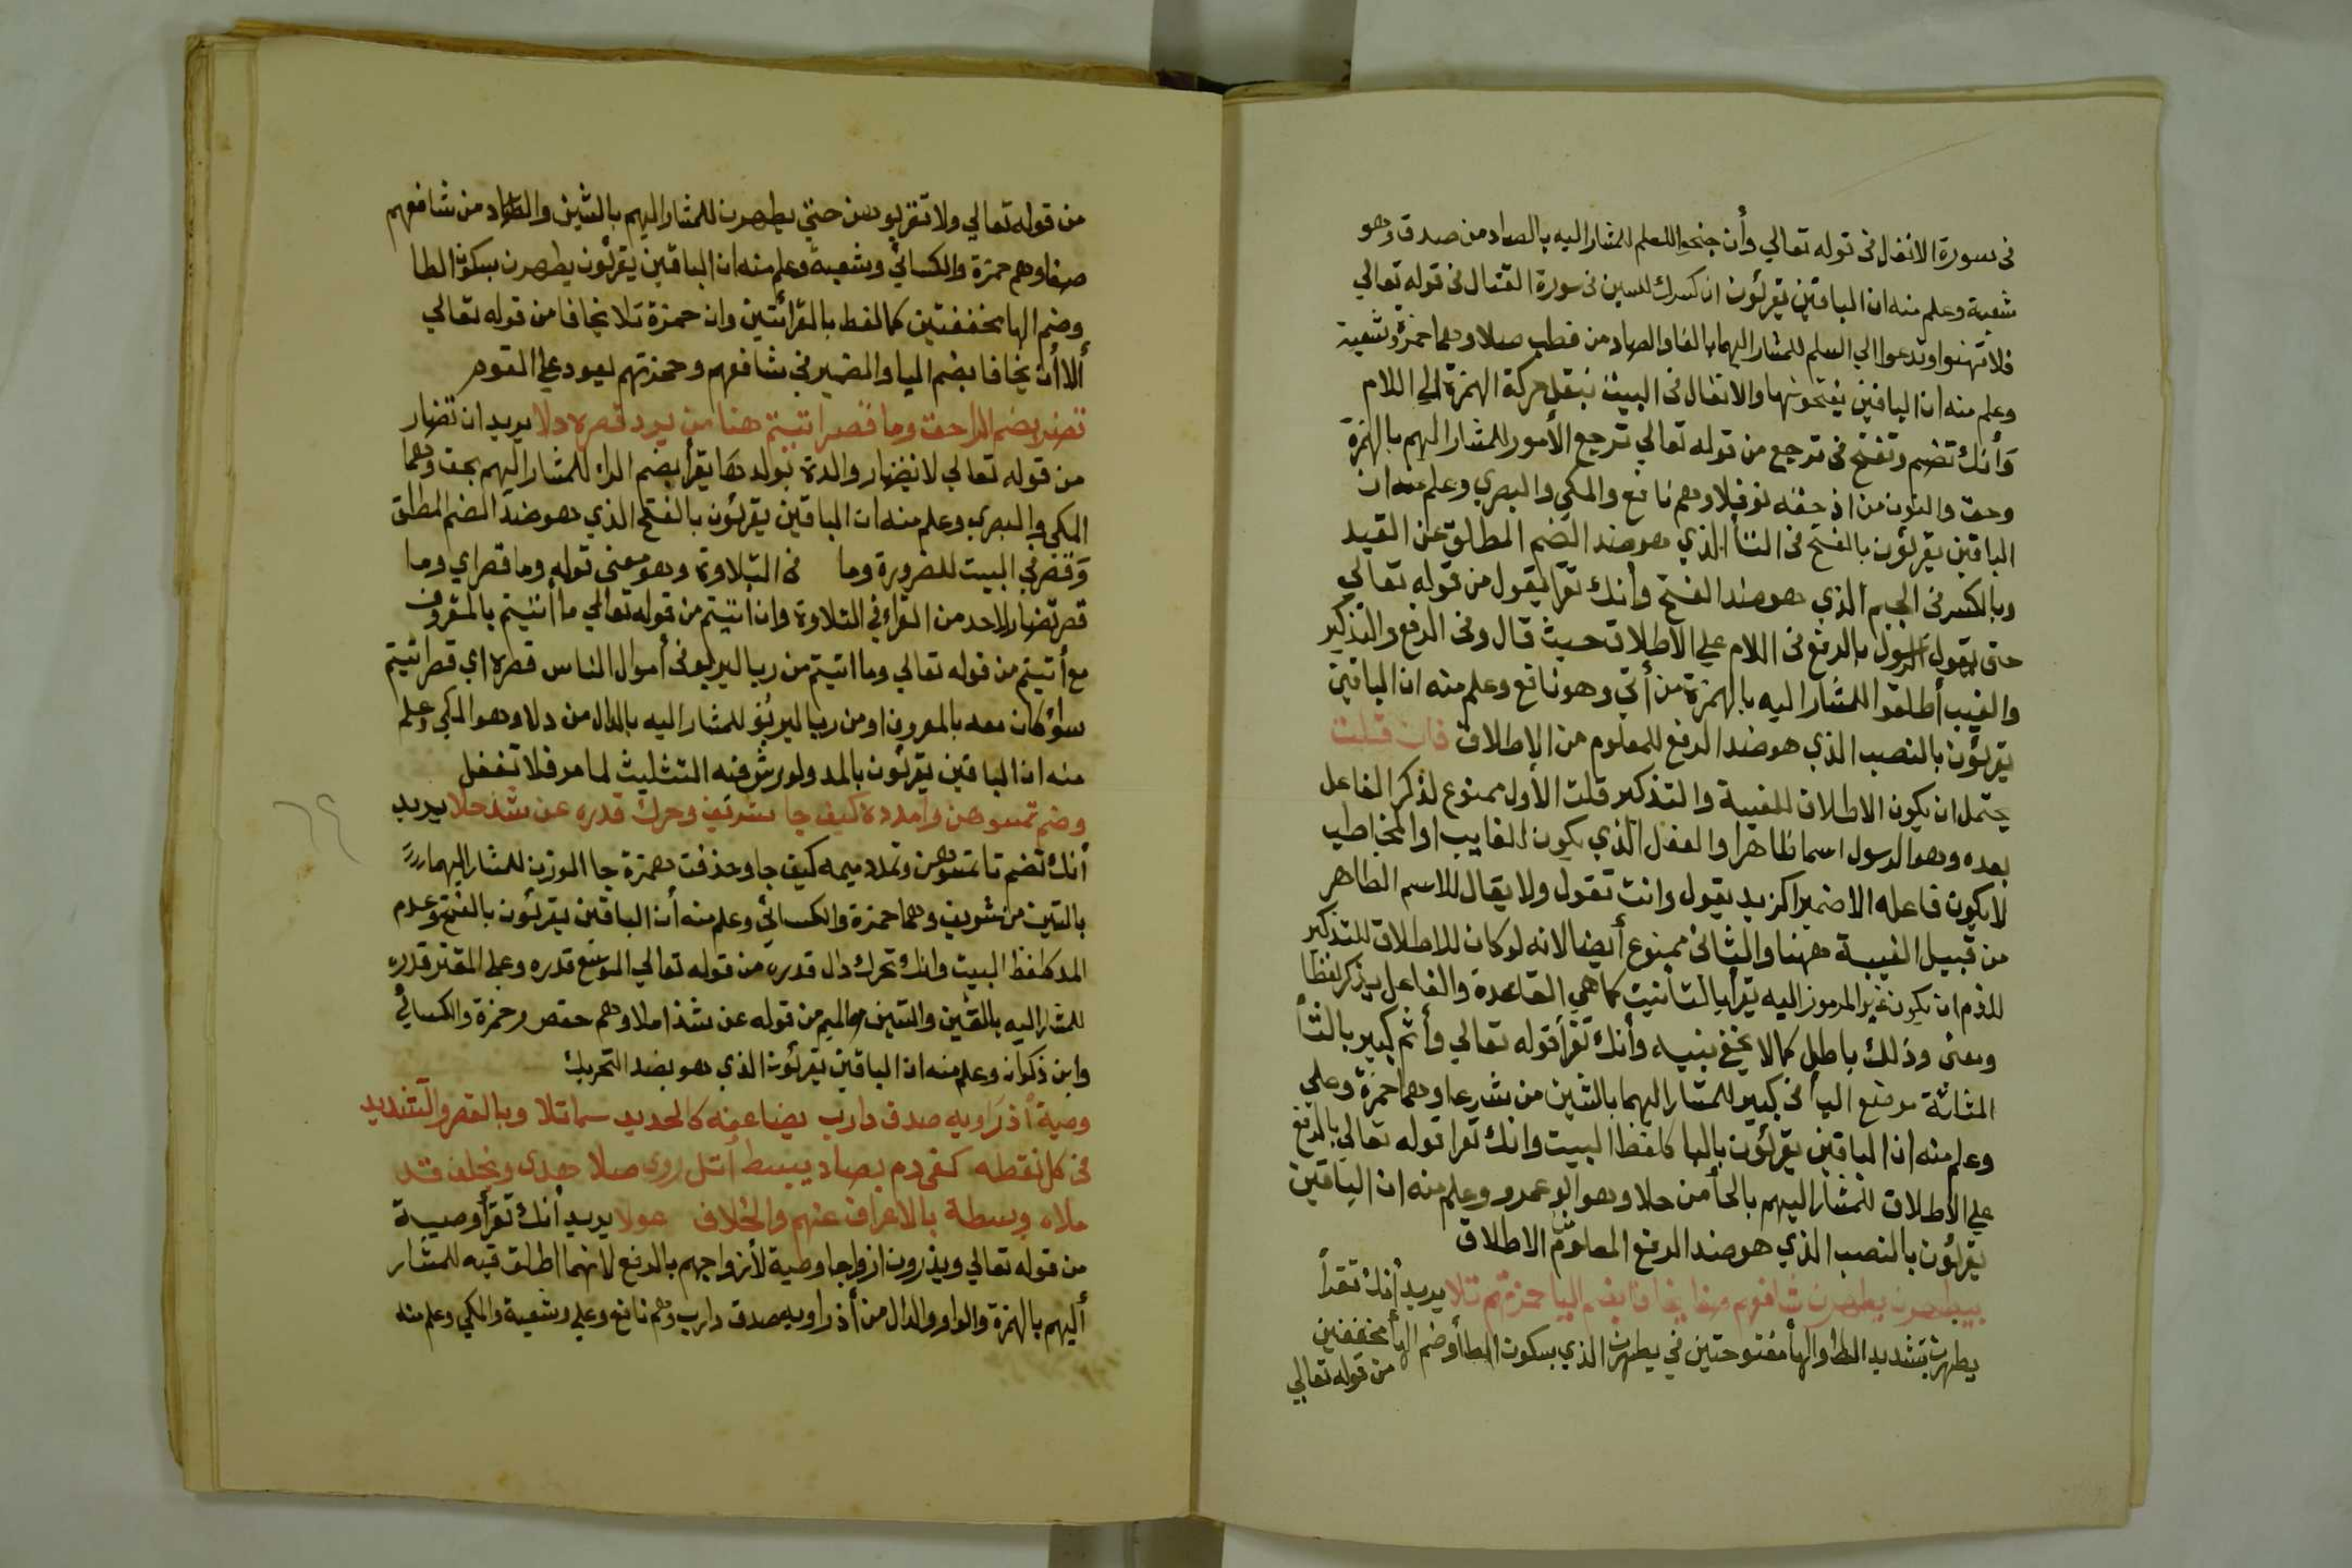 فى سورة الانفال فى قوله تعالي وأن جنحوا للسلم للمشار اليه بالصاد من صدق وهو
شعبة وعلم منه ان الباقين يقرئون ان كسرك للسين فى سورة القتال فى قوله تعالي
فلا تهنوا وتدعوا الي السلم للمشار اليهما بالفا والصاد من فطب صلا وهما حمزة وشعبة
وعلم منه ان الباقين يفتحونها والانفال فى البيت بنقل حركة الهمزة الي اللام
وأنك تضم وتفتح فى ترجع من قوله تعالي ترجع الأمور للمشار اليهم بالهمزة
وحق والنون من اذ حقه نوفلا وهم نافع والمكي والبصري وعلم منه ان
الباقين يقرئون بالفتح فى التأ الذي هو ضد الضم المطلق عن القيد
وبالكسر فى الجيم الذي هو ضد الفتح وأنك تقرأ يقول من قوله تعالي
حتى يقول الرسول بالرفع فى اللام علي الاطلاق حيث قال وفى الرفع والتذكير
والغيب أطلقوا للمشار اليه بالهمزة من أتي وهو نافع وعلم منه ان الباقين
يقرئون بالنصب الذي هو ضد الرفع المعلوم من الاطلاق فان قلت
يحتمل ان يكون الاطلاق للغيبة والتذكير قلت الأول ممنوع لذكر الفاعل
بعده وهو الرسول اسما ظاهرا والفعل الذي يكون الغايب او المخاطب
لا يكون فاعله الا ضميرا كزيد يقول وانت تقول ولا يقال للاسم الظاهر
من قبيل الغيبة ههنا والثانى ممنوع أيضا لانه لو كان للاطلاق للتذكير
للزم ان يكون غير المرموز اليه يقرأ بالتأنيث كما هي القاعدة والفاعل يذكر لفظا
ومعنى وذلك باطل كما لا يخفى بنيه وأنك تقرأ قوله تعالي وأثم كبير بالثأ
المثلثة موضع البأ فى كبير للمشار اليهما بالشين من شرعا وهما حمزة وعلي
وعلم منه ان الباقين يقرئون بالبا كلفظ البيت وانك تقرأ قوله تعالي بالرفع
علي الاطلاق للمشار اليهم بالحأ من حلا وهو ابو عمرو وعلم منه ان الباقين
يقرئون بالنصب الذي هو ضد الرفع المعلوم من الاطلاق
بيطهرن يطهرن شافعهم صفا يخافا بضم اليا حمزتهم تلا يريد أنك تقرأ
يطهرن بتشديد الطا والهأ مفتوحتين في يطهرن الذي بسكون الطأ وضم الهأ مخففين
من قوله تعالي
من قوله تعالي ولا تقربوهن حتى يطهرن للمشار اليهم بالشين والصاد من شافعهم
صفا وهم حمزة والكسائي وشعبة وعلم منه ان الباقين يقرئون يطهرن بسكون الطا
وضم الها مخففتين كما لفظ بالقرائتين وان حمزة تلا يخافا من قوله تعالي
ألا أن يخافا بضم اليا والضمير فى شافعهم وحمزتهم يعود علي القوم
تضار بضم الرا حق وما قصر اتيتم هنا من يرد قصره دلا يريد ان تضار
من قوله تعالي لا تضار والدة بولدها يقرأ بضم الراء للمشار اليهم بحق وهما
المكي والبصري وعلم منه ان الباقين يقرئون بالفتح الذي هو ضد الضم المطلق
وقصر في البيت للضرورة وما فى التلاوة وهو معنى قوله وما قصر اي وما
قصر تضار لأحد من القراء في التلاوة وان أتيتم من قوله تعالي ما أتيتم بالمعروف
مع أتيتم من قوله تعالي وما اتيتم من ربا ليربو فى أموال الناس قصره اي قصر اتيتم
سواء كان معه بالمعروف او من ربا ليربو للمشار اليه بالدال من دلا وهو المكي وعلم
منه ان الباقين يقرئون بالمد ولورش فيه التثليث لما مر فلا تغفل
وضم تمسوهن وامدده كيف جا شريف وحرك قدره عن شذ حلا يريد
أنك تضم تا تمسوهن وتمدد ميمه كيف جا وحذفت همزة جا للوزن للمشار اليهما
بالشين من شريف وهما حمزة والكسائي وعلم منه أن الباقين يقرئون بالفتح وعدم
المد كلفظ البيت وانك تحرك دال قدره من قوله تعالي الموسع قدره وعلي المقتر قدره
للمشار اليه بالعين والشين والميم من قوله عن شذا ملا وهم حفص وحمزة والكسائي
وابن ذكوان وعلم منه ان الباقين يقرئون الذي هو بضد التحريك
وصية أذ راويه صدق دارب يضاعفه كالحديد سما تلا وبالقصر والتشديد
فى كل نقطه كفى دم بصاد يبسط أتل روى صلا هدى وبخلف قد
ملاه وبسطة بالاعراف عنهم والخلاف عولا يريد أنك تقرأ وصية
من قوله تعالي ويذرون ازواجا وصية لأزواجهم بالرفع لانهما اطلق فيه للمشار
أليهم بالهمزة والواو والدال من أذ راويه صدق دارب وهم نافع وعلي وشعبة والمكي وعلم منه